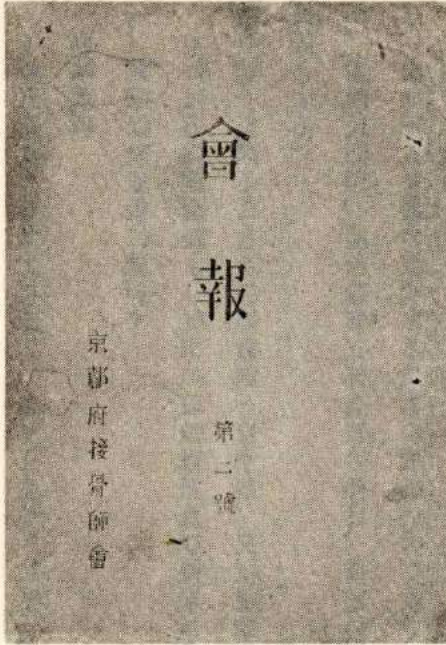 會報
第二號
京都府接骨師會